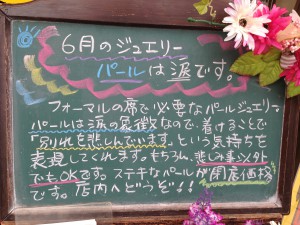 6月のジュエリー
パールは涙です。
フォーマルの席で必要なパールジュエリー。
パールは涙の象徴なので、着けることで
「別れを悲しんでいます。」という気持ちを
表現してくれます。もちろん、悲しみ事以外
でもOKです。ステキなパールが開店価格
です。店内へどうぞ!!